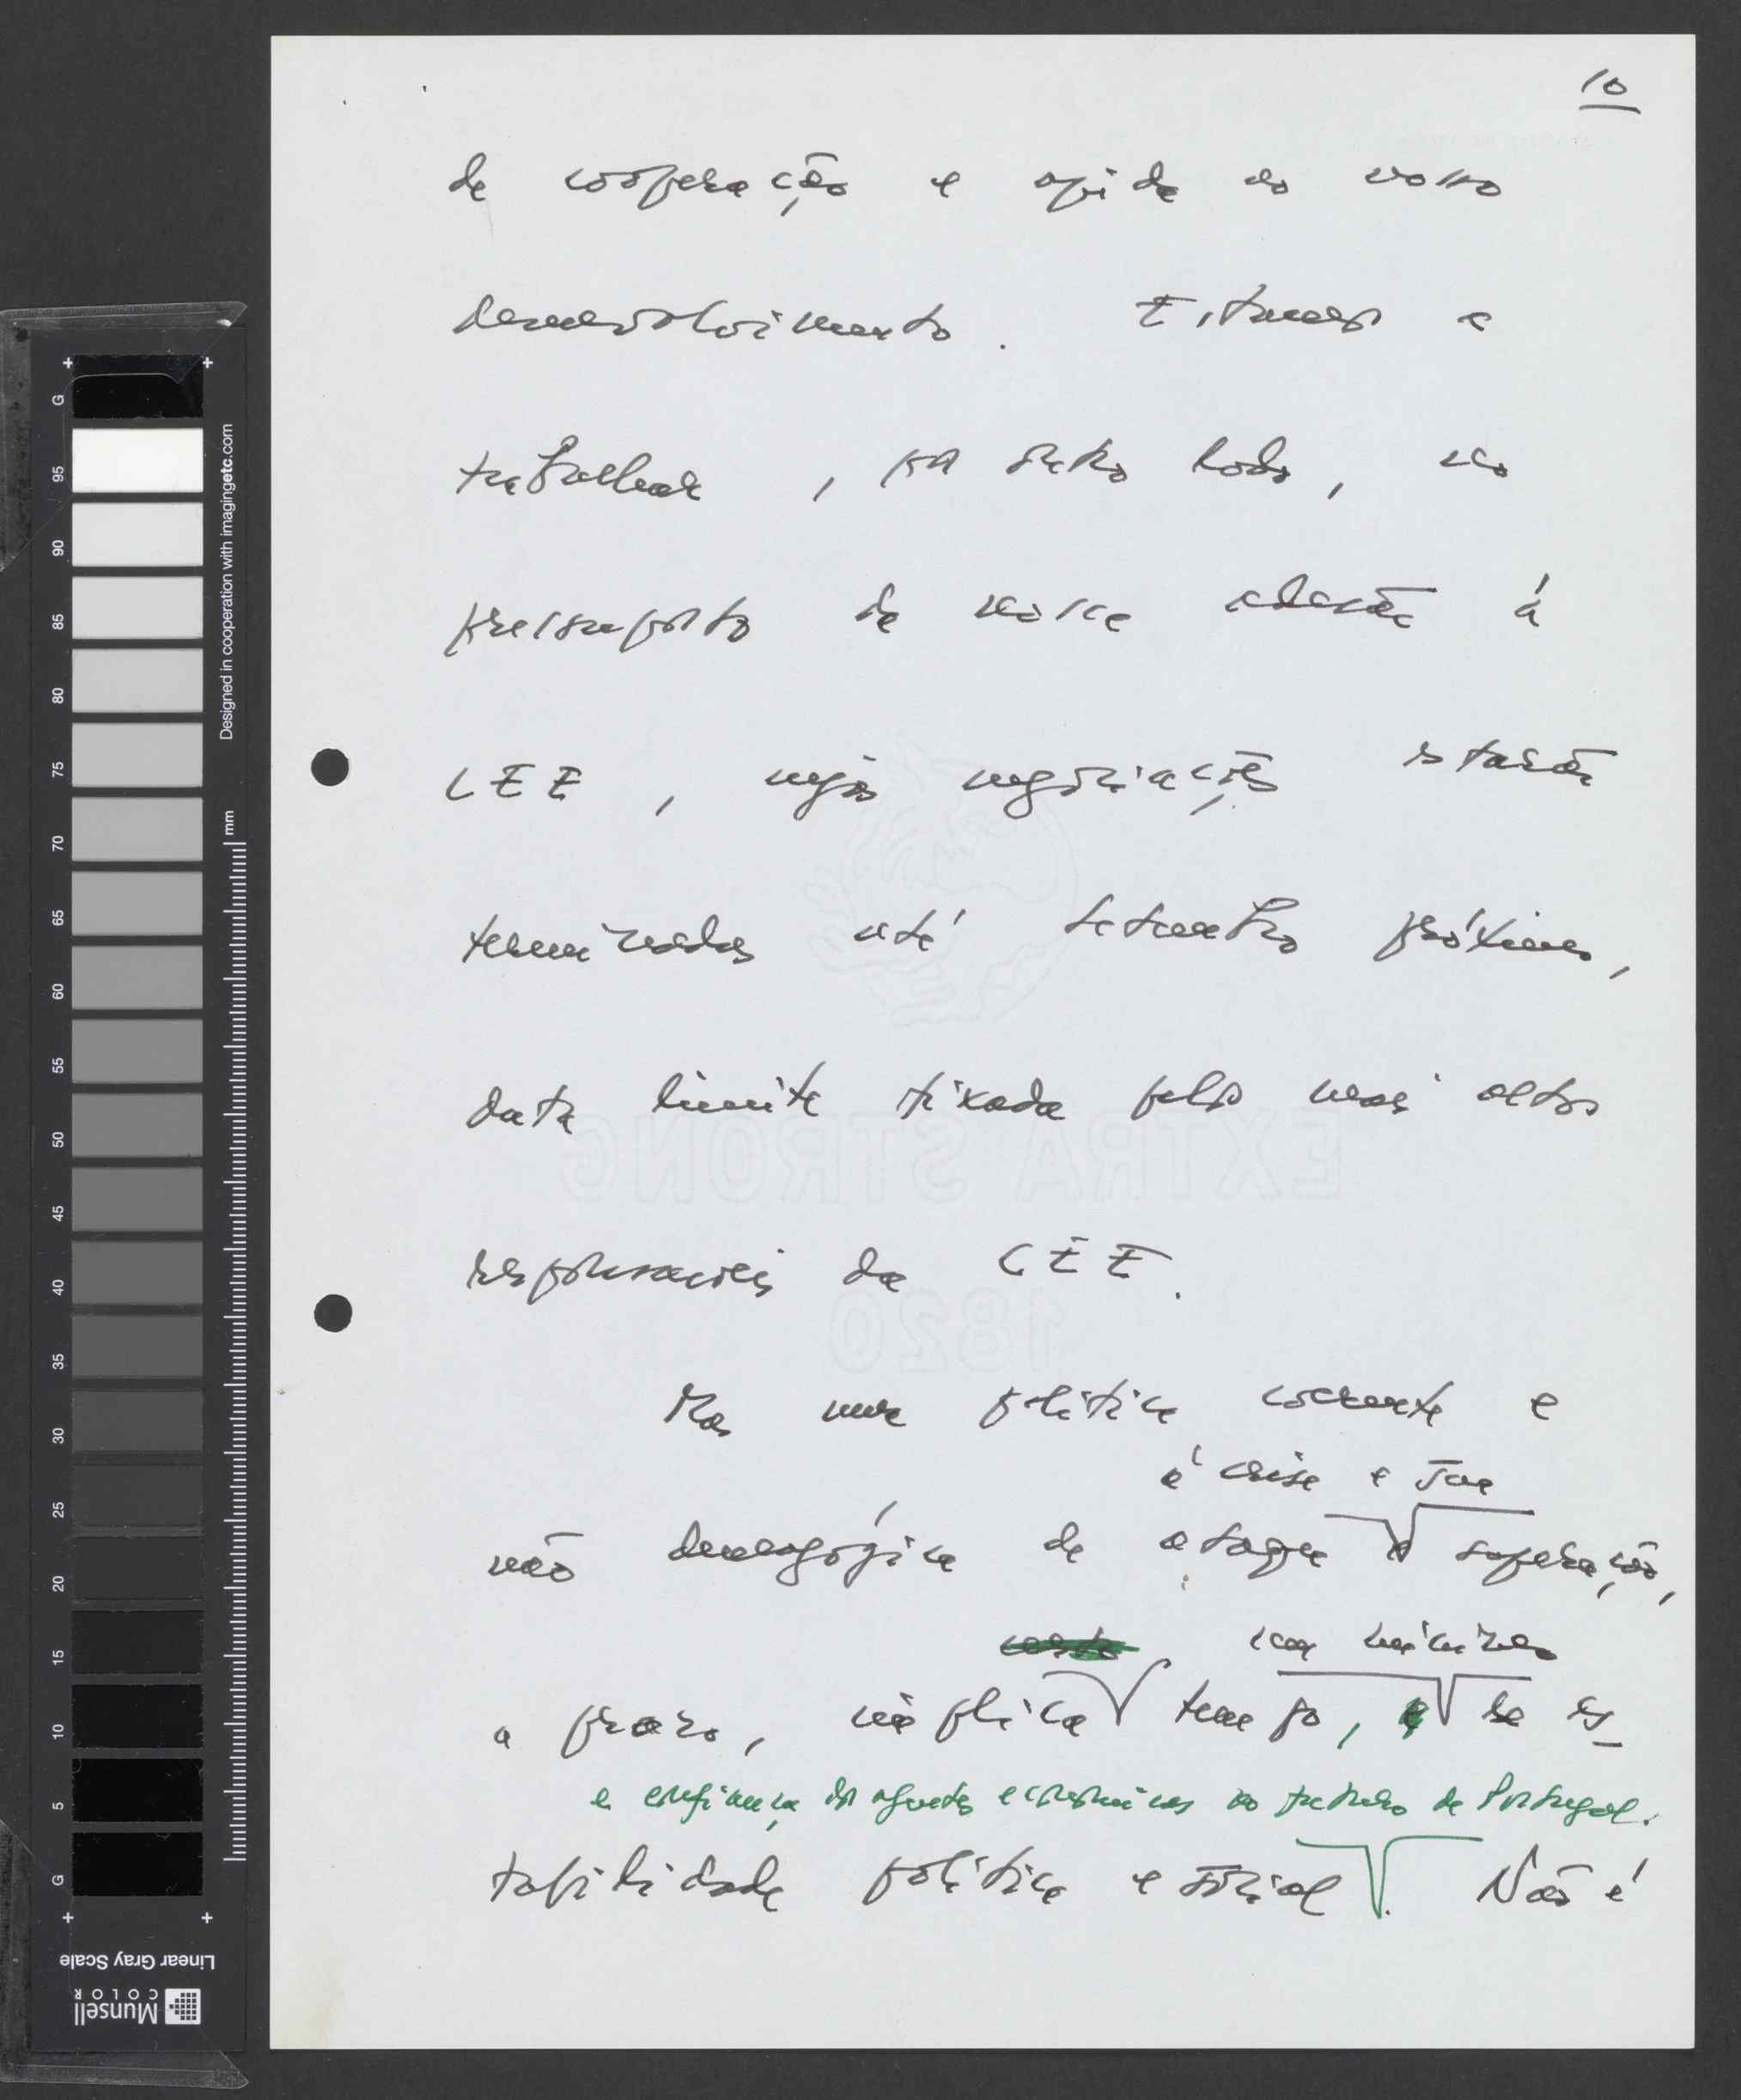 10
de cooperação e ajuda ao nosso
desenvolvimento. Estamos a
trabalhar, por outro lado, no
pressuposto da nossa adesão à
CEE, cujas negociações estarão
terminadas até setembro próximo,
data limite fixada pelos mais altos
responsáveis da CEE.
Mas uma política coerente e
à crise e sua
não demagógica de ataque e superação,
com mínimo
a prazo, implica tempo, e de es-
e confiança dos agentes económicos no futuro de Portugal.
tabilidade política e social. Não é
EXTRA STRONG
1820
G
95
90
85
80
75
70
65
60
55
50
45
40
35
30
25
20
15
10
5
G
Designed in cooperation with imagingetc.com
mm
Linear Gray Scale
Munsell
COLOR